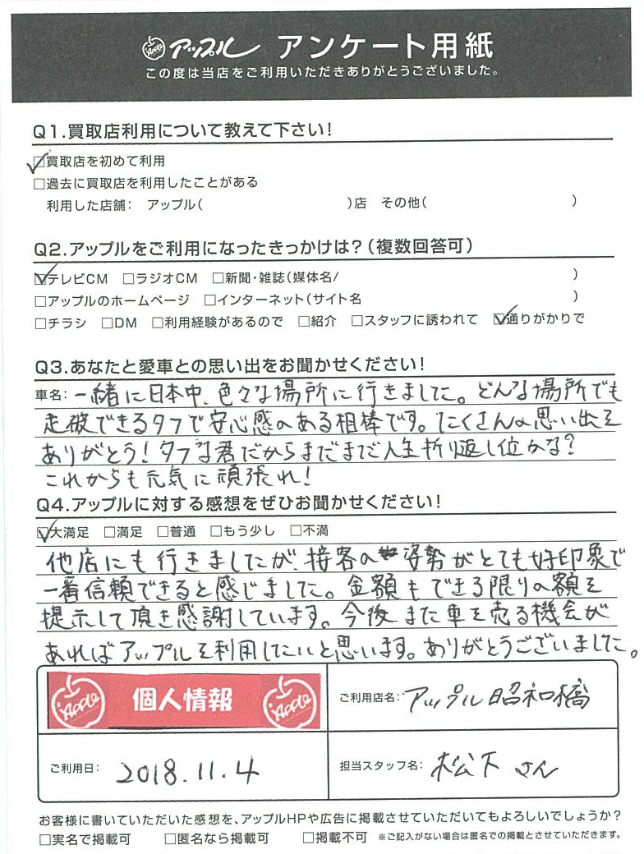 Apple アップル アンケート用紙
この度は当店をご利用いただきありがとうございました。
Q1.買取店利用について教えて下さい!
☑買取店を初めて利用
□過去に買取店を利用したことがある
利用した店舗: アップル( )店 その他( )
Q2.アップルをご利用になったきっかけは?(複数回答可)
☑テレビCM □ラジオCM □新聞・雑誌(媒体名/ )
□アップルのホームページ □インターネット(サイト名 )
□チラシ □DM □利用経験があるので □紹介 □スタッフに誘われて ☑通りがかりで
Q3.あなたと愛車との思い出をお聞かせください!
車名: 一緒に日本中、色々な場所に行きました。どんな場所でも
走破できるタフで安心感のある相棒です。たくさんの思い出を
ありがとう!タフな君だからまだまだ人生折り返し位かな?
これからも元気に頑張れ!
Q4.アップルに対する感想をぜひお聞かせください!
☑大満足 □満足 □普通 □もう少し □不満
他店にも行きましたが、接客の姿勢がとても好印象で
一番信頼できると感じました。金額もできる限りの額を
提示して頂き感謝しています。今後また車を売る機会が
あればアップルを利用したいと思います。ありがとうございました。
Apple 個人情報 Apple
ご利用店名: アップル昭和橋
ご利用日: 2018.11.4
担当スタッフ名: 松下さん
お客様に書いていただいた感想を、アップルHPや広告に掲載させていただいてもよろしいでしょうか?
□実名で掲載可 □匿名なら掲載可 □掲載不可 ※ご記入がない場合は匿名での掲載とさせていただきます。